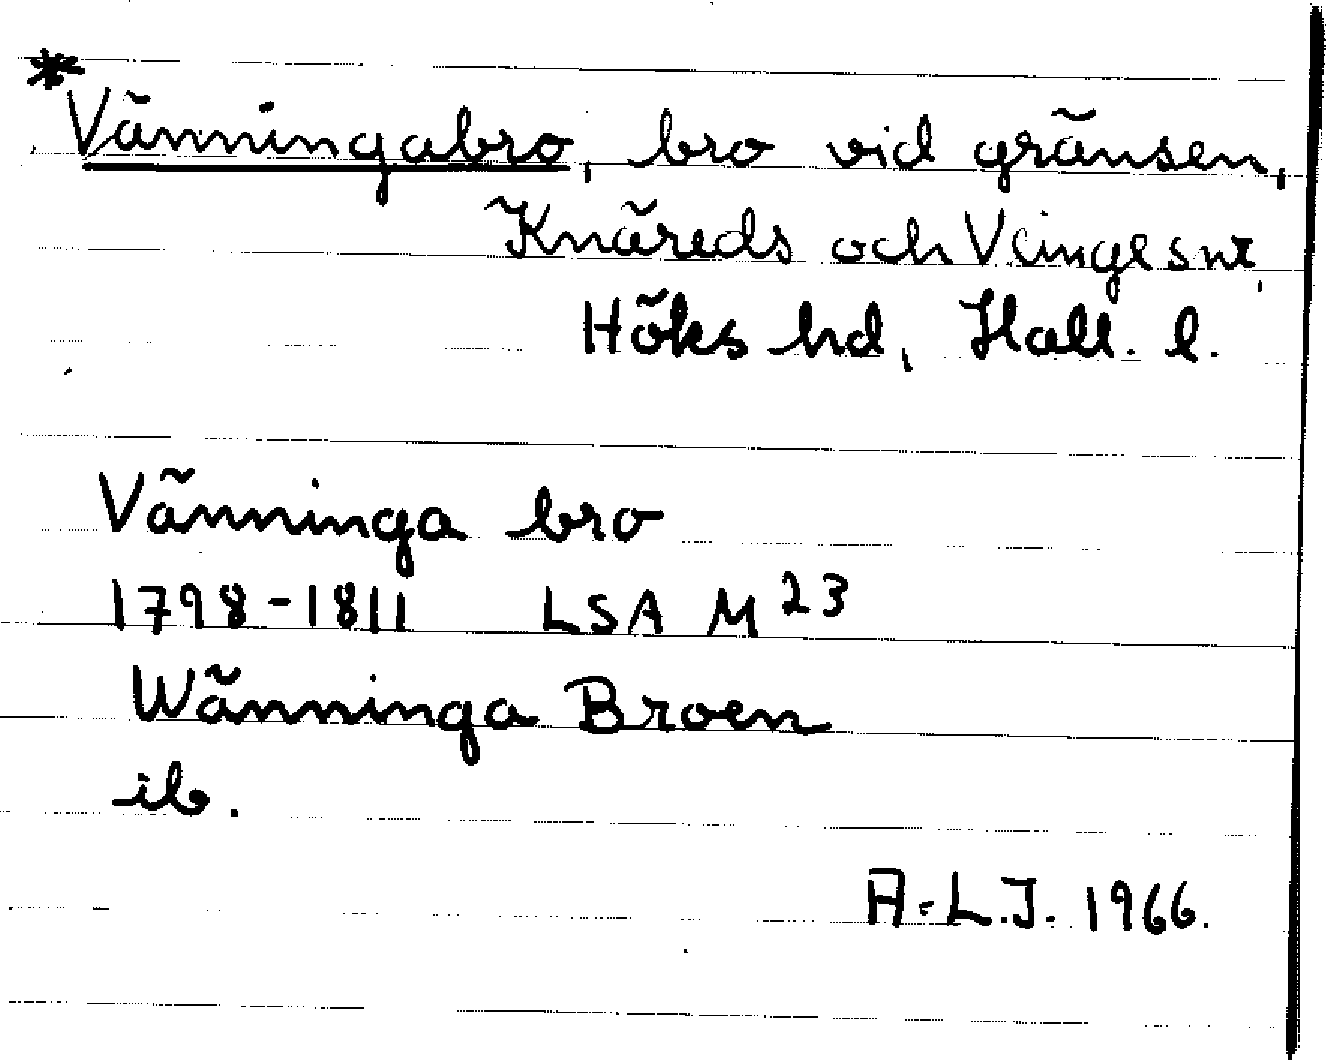 *Vänningabro, bro vid gränsen,
Knäreds och Veinge snr,
Höks hd, Hall. l.
Vänninga bro
1798-1811 LSA M 23
Wänninga Broen
ib.
A-L.J. 1966.